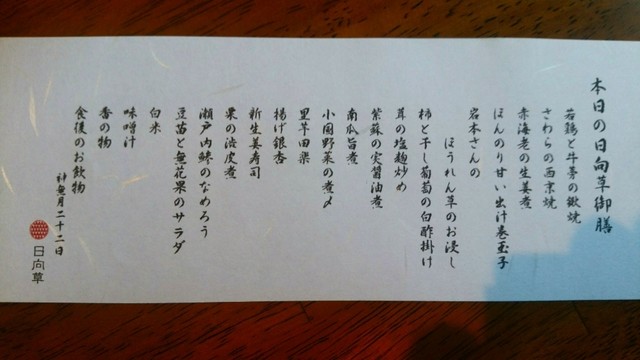 本日の日向草御膳
若鶏と牛蒡の鍬焼
さわらの西京焼
赤海老の生姜煮
ほんのり甘い出汁巻玉子
岩本さんの
ほうれん草のお浸し
柿と干し葡萄の白酢掛け
茸の塩麹炒め
紫蘇の実醤油煮
南瓜旨煮
小園野菜の煮〆
里芋田楽
揚げ銀杏
新生姜寿司
栗の渋皮煮
瀬戸内鯵のなめろう
豆苗と無花果のサラダ
白米
味噌汁
香の物
食後のお飲物
神無月二十二日
日向草